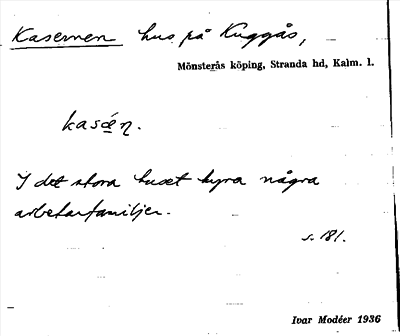 Kasernen hus på Kuggås,
Mönsterås köping, Stranda hd, Kalm. l.
kasǽn.
I det stora huset hyra några
arbetarfamiljer.
s. 181.
Ivar Modéer 1936